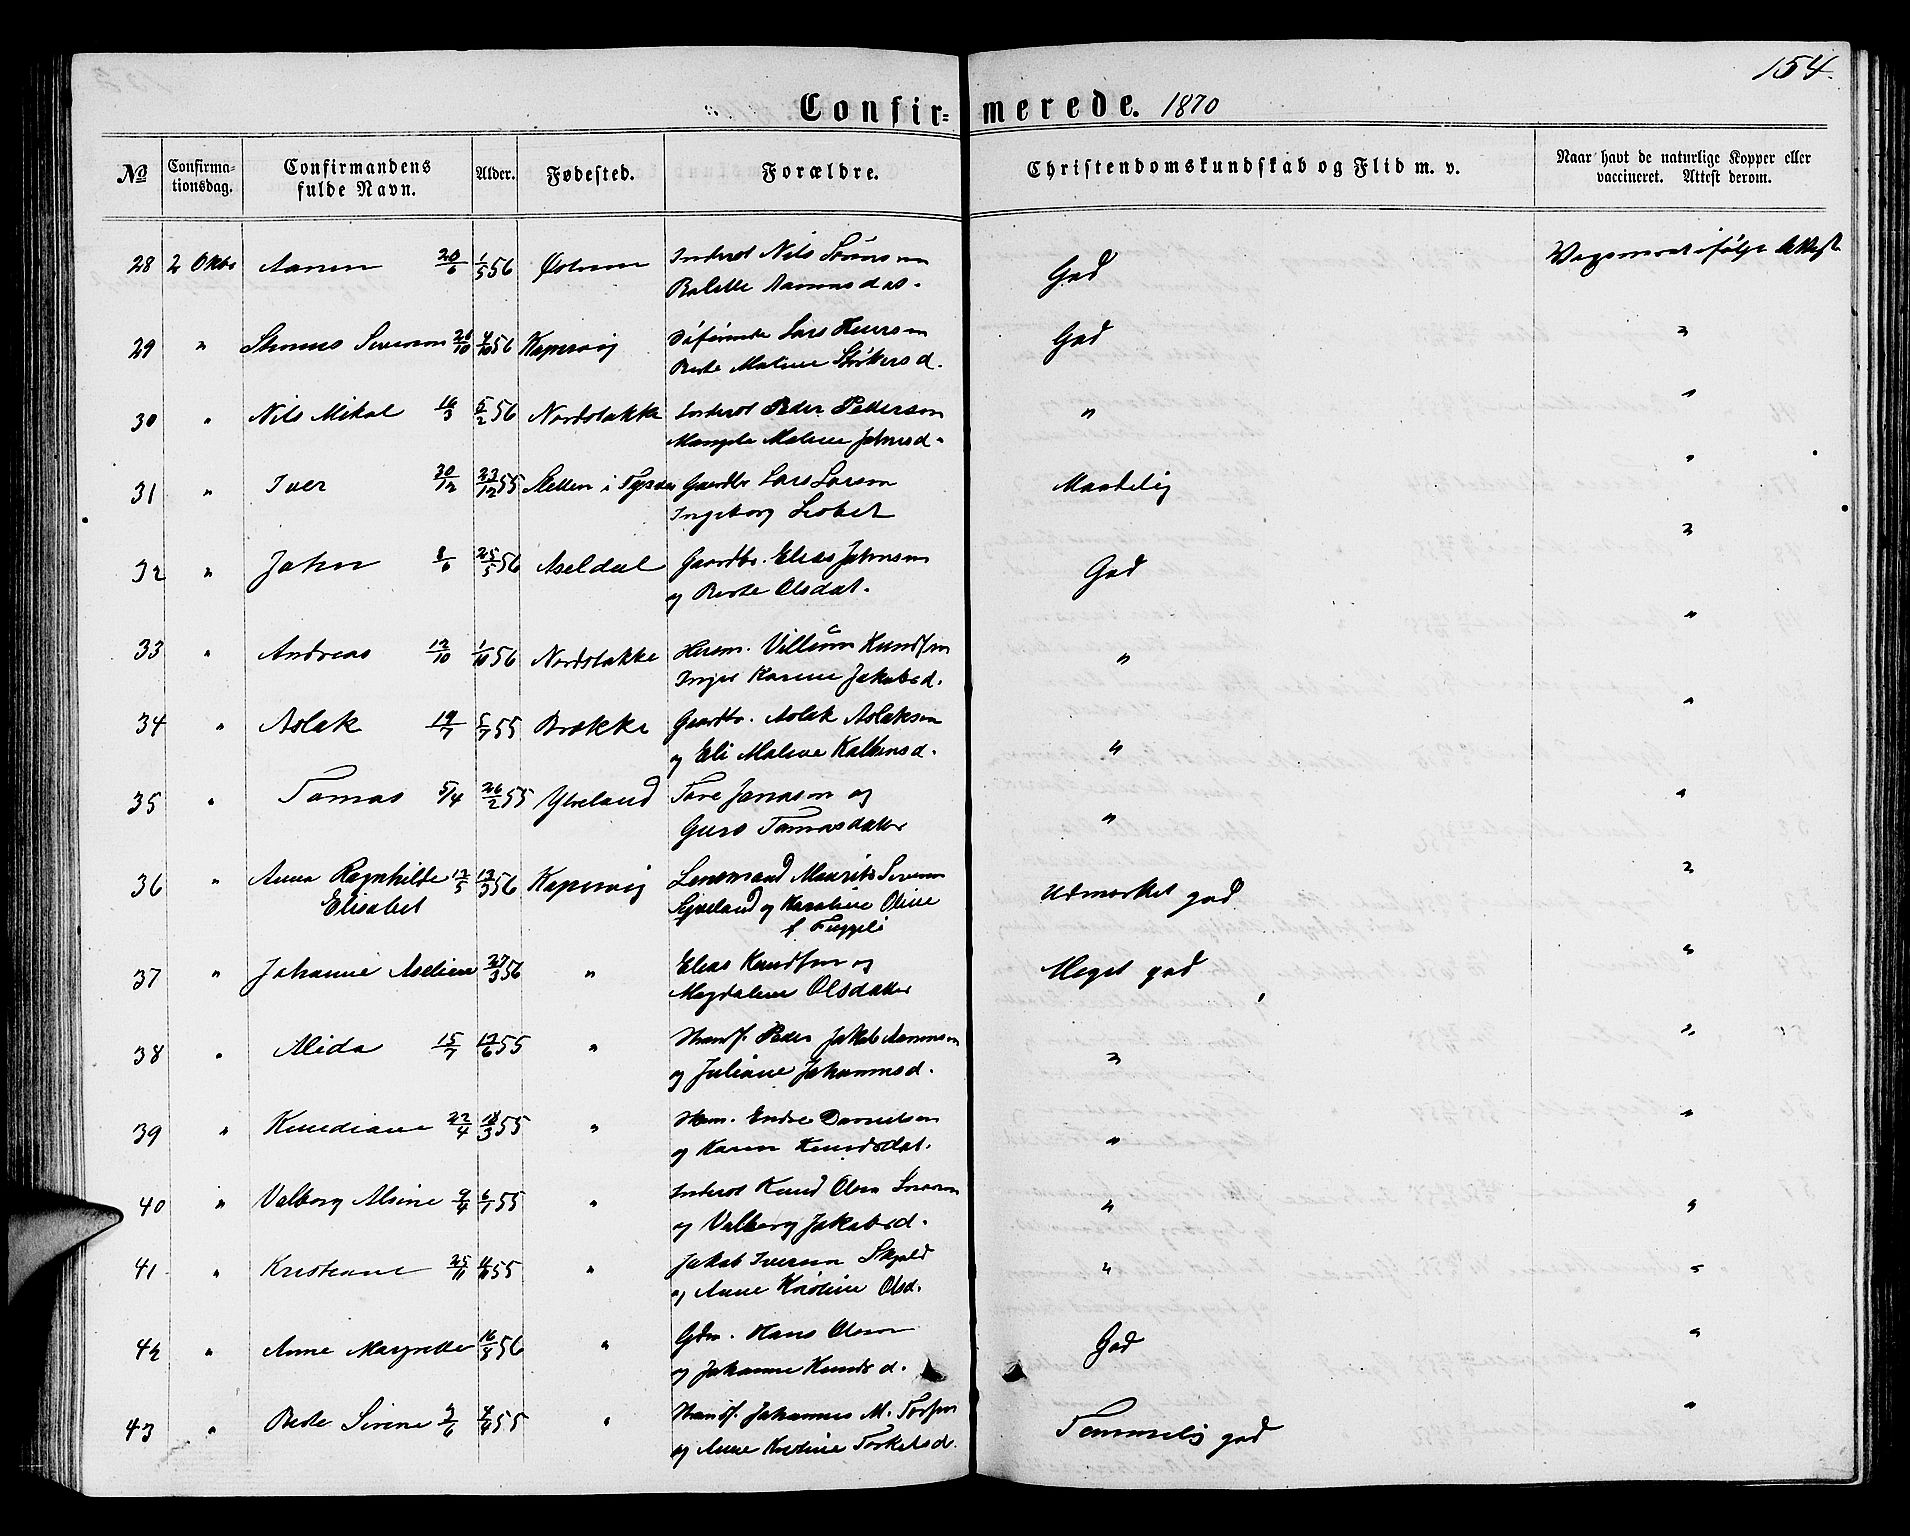 154.
Confirmerede. 1870
No
Confirma-
tionsdag.
Confirmandens
fulde Navn.
Alder.
Fødested.
Forældre.
Christendomskundskab og Flid m. v.
Naar havt de naturlige Kopper eller
vaccineret. Attest derom.
28 2 Oktbr 20/6 1/5 56 Inderst Nils
God ifølge Attest
29 " 26/10 4/10 56 Kopervig Lars
Berte Malene God "
30 " Nils Mikal 16/3 5/2 56 Nordstokke Inderst Peder Pederson
Malene Johnsd. " "
31 " Iver 30/12 23/12 55 i Gaardbr Lars Larson
Ingeborg Maadelig "
32 " John 8/6 25/5 56 Aseldal Gaardbr. Elias Johnson
og Berte Olsdat. God "
33 " Andreas 12/10 1/10 56 Nordstokke Husm. Villum Knudsen
Karine Jakobsd. " "
34 " Aslak 19/7 5/7 55 Brekke Gaardbr. Aslak Aslakson
og Eli Malene " "
35 " Tomas 5/4 26/2 55 Ytreland Tore Jonason og
Guro Tomasdatter " "
36 " Anna Ragnhilde 12/5 12/3 56 Kopervig Lensmand Maurits
Elisabet og Karoline Oline
f. Udmærket god "
37 " Johanne Aseline 27/3 56 " Elias Knudsen og
Magdalene Olsdatter Meget god "
38 " Alida 15/7 12/6 55 " Strands. Peder Jakob
og Juliane Johannesd. " "
39 " Knudiane 22/4 18/3 55 " Husm. Endre Danielson
og Karen Knudsdat. " "
40 " Valborg Alsine 9/9 6/7 55 " Inderst Knud Olson
og Valborg Jakobsd. " "
41 " Kristiane 25/11 55 " Jakob Iverson
og Anne Kristine Olsd. " "
42 " Anne Margrette 16/3 56 " Gdm. Hans Olson
og Johanne Knudsd. God "
43 " Berte Sirene 3/6 4/4 55 " Strands. Johannes M.
og Anne Kristine Torkelsd. Temmelig god "